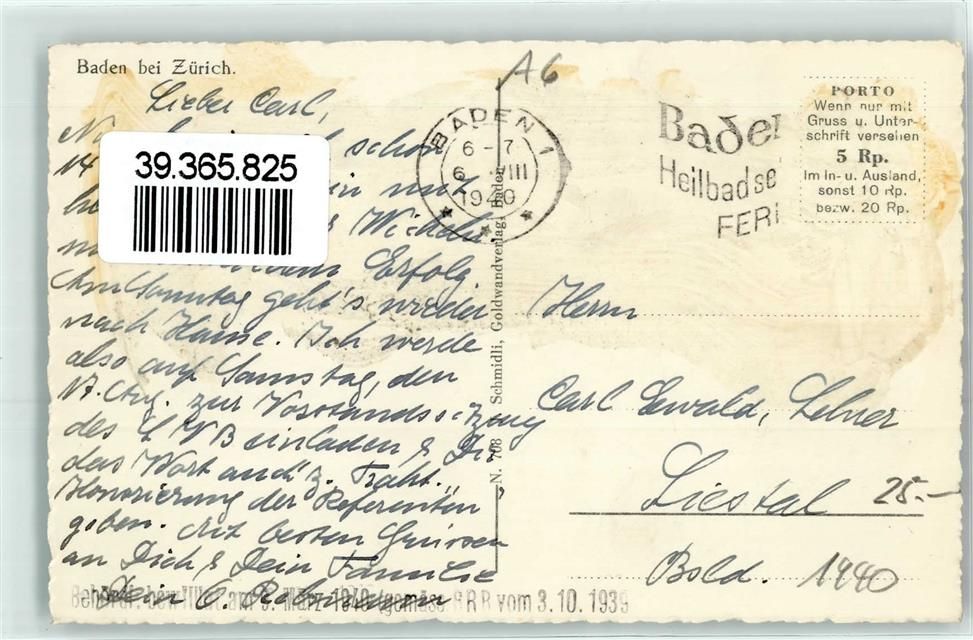 Baden bei Zürich.
A6
Lieber Carl,
schon
14
39.365.825
mit
Wickeln
Erfolg.
Am Sonntag geht's wieder
nach Hause. Ich werde
also auf Samstag, den
17. Aug. zur Vorstandssitzung
des L V B einladen & Dir
das Wort
Honorierung der Referenten
geben. Mit besten Grüssen
an Dich & Dein Familie
Dein
BADEN 1
6-7
6. VIII
1940
Baden
Heilbad
FERI
PORTO
Wenn nur mit
Gruss u. Unter-
schrift versehen
5 Rp.
Im In- u. Ausland,
sonst 10 Rp.
bezw. 20 Rp.
N. 708 Schmidli, Goldwandverlag, Baden
Herrn
Carl Ewald, Lehrer
Liestal
25.–
Bsld. 1940
Behördl. bewilligt am 9. März 1940 gemäss BRB vom 3.10.1939